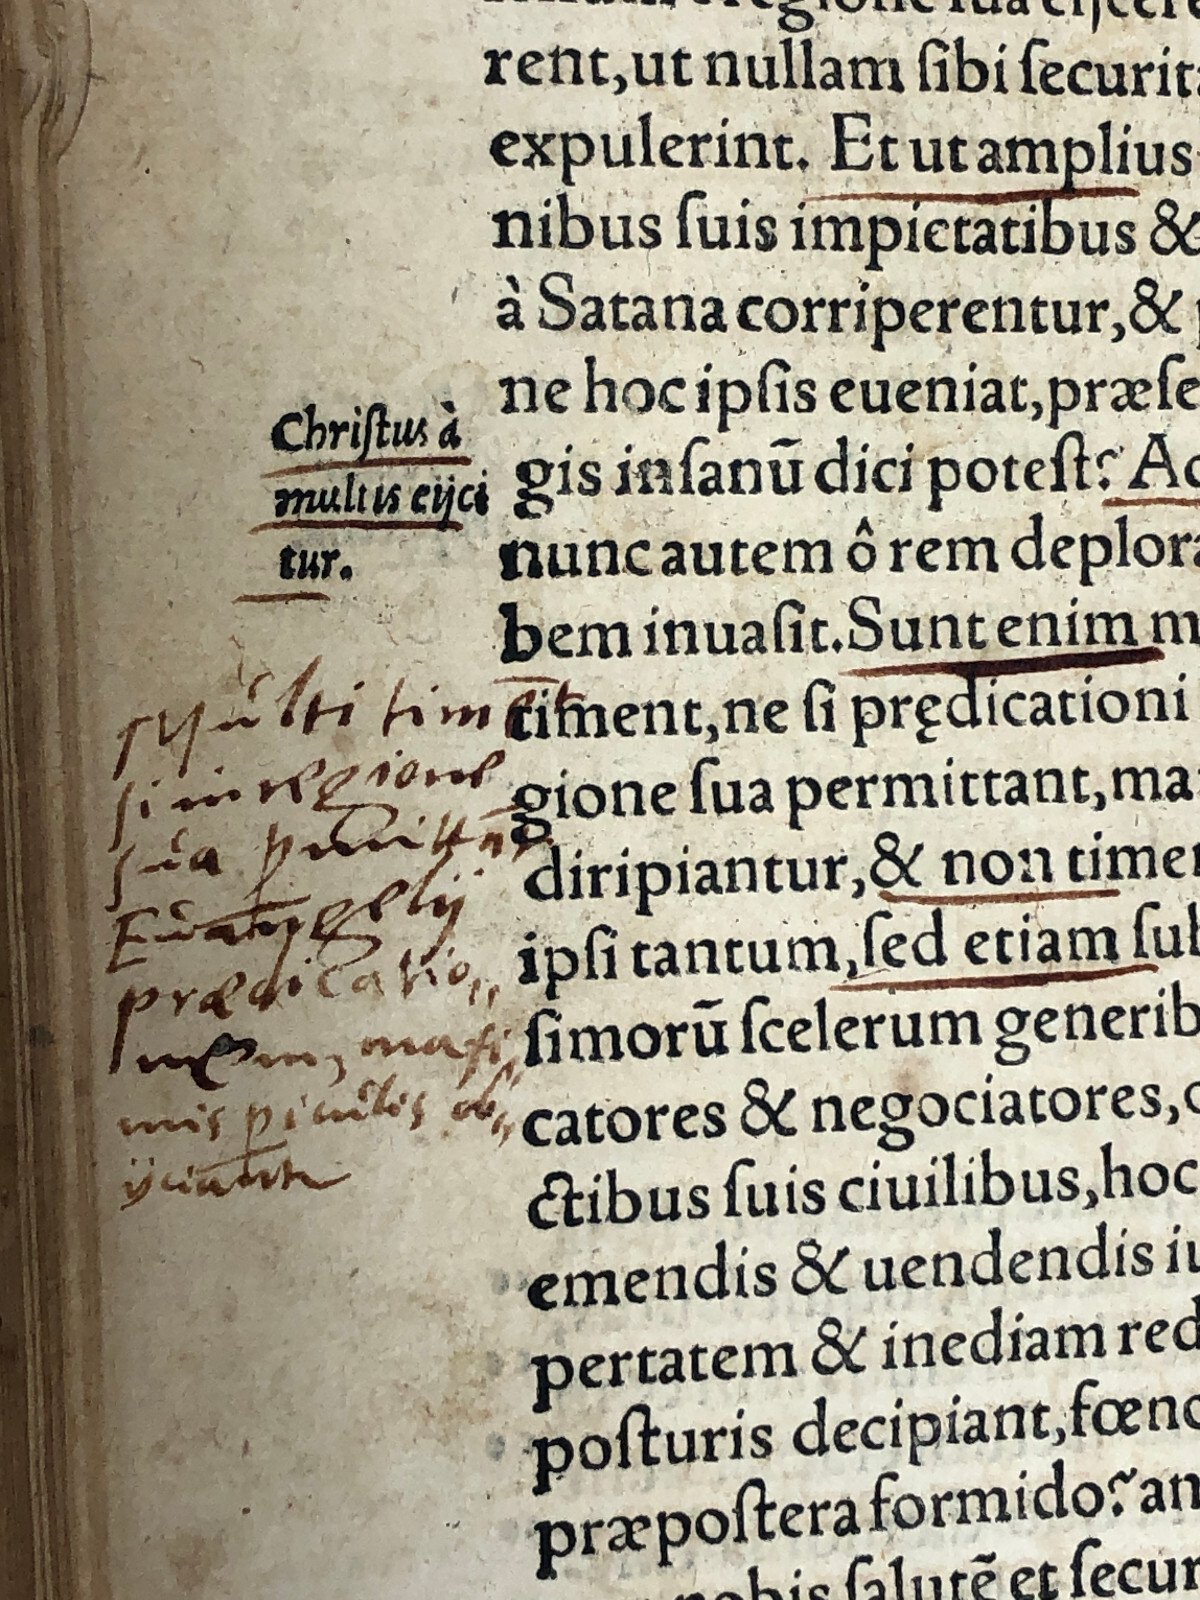 rent,ut nullam ſibi ſecurit
expulerint. Et ut amplius
nibus ſuis impietatibus &
à Satana corriperentur,&
ne hoc ipſis eueniat,præſe
gis inſanū dici poteſt? Ac
nunc autem ô rem deplora
bem inuaſit. Sunt enim m
timent,ne ſi prędicationi
gione ſua permittant,ma
diripiantur,& non timen
ipſi tantum,ſed etiam ſub
ſimorū ſcelerum generib
catores & negociatores,c
ctibus ſuis ciuilibus,hoc
emendis & uendendis iu
pertatem & inediam red
poſturis decipiant,fœno
præpoſtera formido? an
nobis ſalutē et ſecur
Chriſtus à
multis eijci
tur.
Multi timēt
ſi in regione
ſua pmittāt
Euangelij
prædicatio„
nem, maxi„
mis piculis ob„
ijciantr